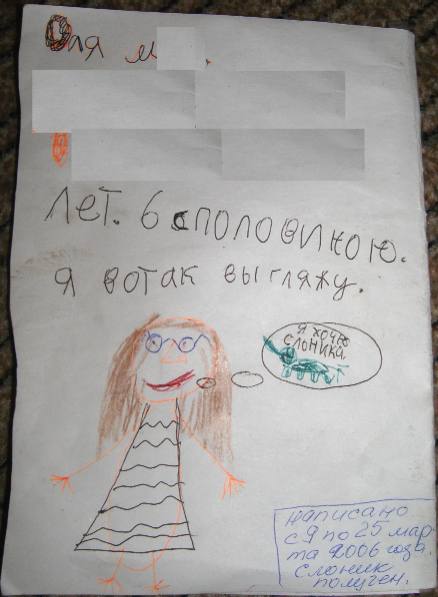 Оля м
Лет. 6 споловиною.
я вотак выгляжу.
Я ХОЧУ
СЛОНИКА
написано
с 9 по 25 мар-
та 2006 года.
Слоник
получен.